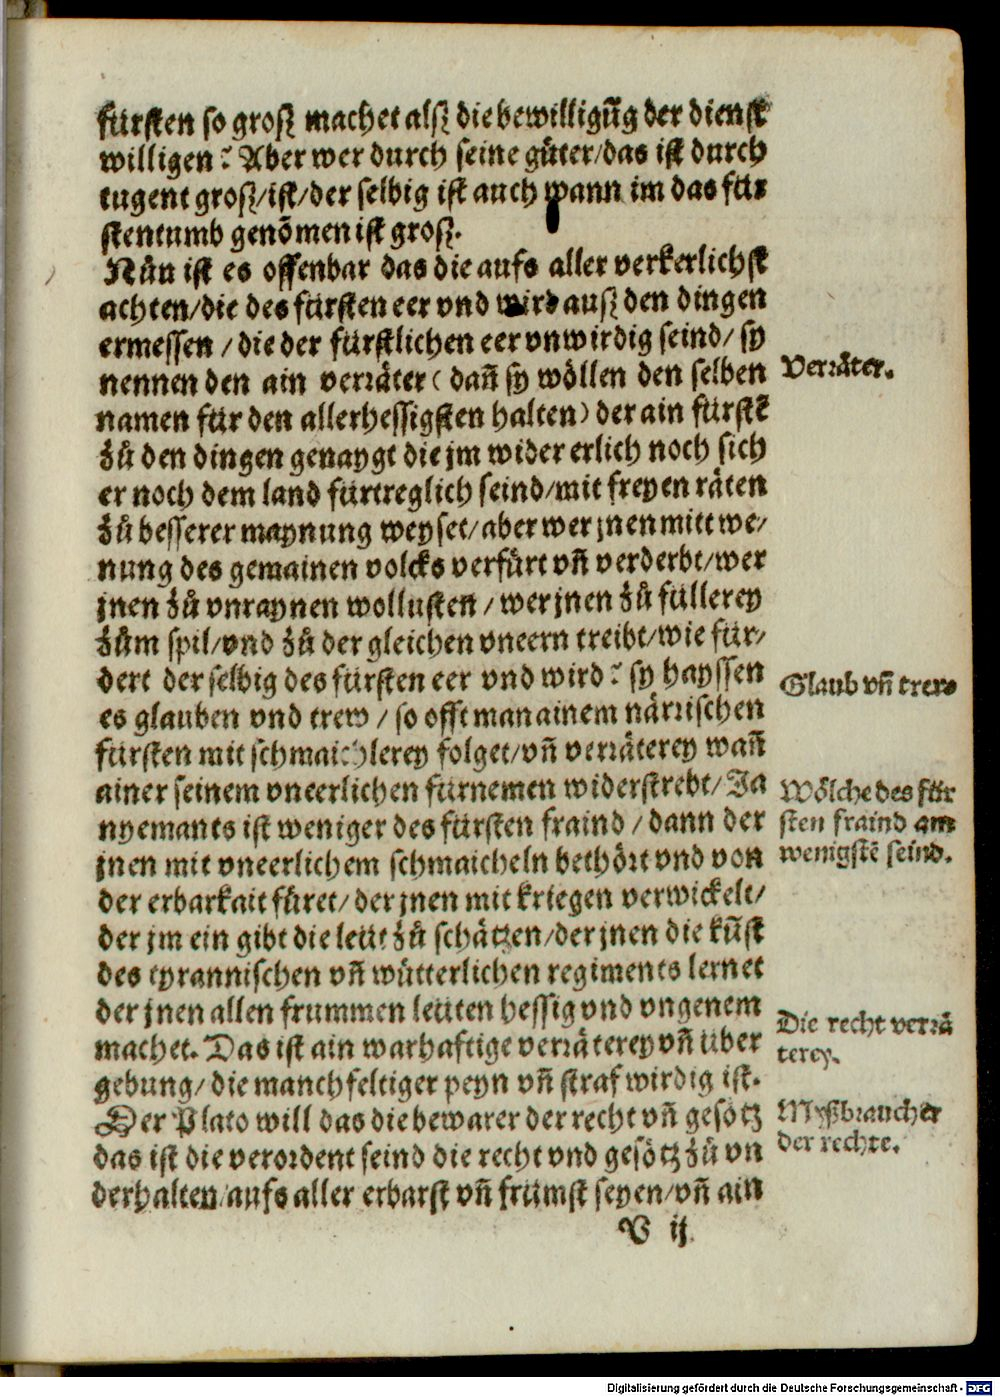 fürsten so groß machet alß die bewilligūg der dienst
willigen? Aber wer durch seine gůter/das ist durch
tugent groß/ist/der selbig ist auch wann im das für
stentumb genōmen ist groß.
Nůn ist es offenbar das die aufs aller verkerlichst
achten/die des fürsten eer vnd wird auß den dingen
ermessen / die der fürstlichen eer vnwirdig seind/ sy
nennen den ain verräter ( dañ sy wöllen den selben
namen für den allerhessigsten halten) der ain fürstē
zů den dingen genaygt die jm wider erlich noch sich
er noch dem land fürtreglich seind/mit freyen räten
zů besserer maynung weyset/aber wer jnen mitt we/
nung des gemainen volcks verfürt vñ verderbt/wer
jnen zů vnraynen wollusten / wer jnen zů füllerey
zům spil/vnd zů der gleichen vneern treibt/wie für/
dert der selbig des fürsten eer vnd wird? sy hayssen
es glauben vnd trew / so offt man ainem närrischen
fürsten mit schmaichlerey folget/vñ verräterey wañ
ainer seinem vneerlichen fürnemen widerstrebt/ Ja
nyemants ist weniger des fürsten fraind / dann der
jnen mit vneerlichem schmaicheln bethört vnd von
der erbarkait füret/ der jnen mit kriegen verwickelt/
der jm ein gibt die leüt zů schätzen/der jnen die kūst
des tyrannischen vñ wütterlichen regiments lernet
der jnen allen frummen leüten hessig vnd vngenem
machet. Das ist ain warhaftige verräterey vñ über
gebung/ die manchfeltiger peyn vñ straf wirdig ist.
Der Plato will das die bewarer der recht vñ gesötz
das ist die verordent seind die recht vnd gesötz zů vn
derhalten/aufs aller erbarst vñ frümst seyen/vñ ain
V ij
Verräter.
Glaub vñ trew
Wölche des für
sten fraind am
wenigstē seind.
Die recht verrä
terey.
Myßbraucher
der rechte.
Digitalisierung gefördert durch die Deutsche Forschungsgemeinschaft - DFG